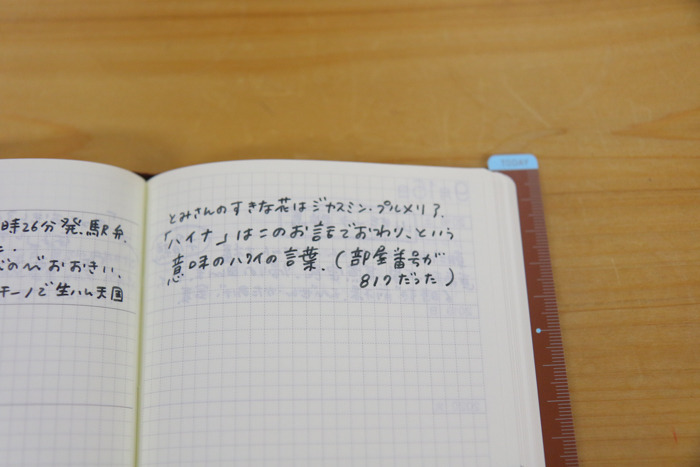 時26分発.駅弁.
のべおおさい、
チーノで生ハム天国
とみさんのすきな花はジャスミン.プルメリア.
「ハイナ」はこのお話でおわり、という
意味のハワイの言葉.(部屋番号が
817だった)
TODAY